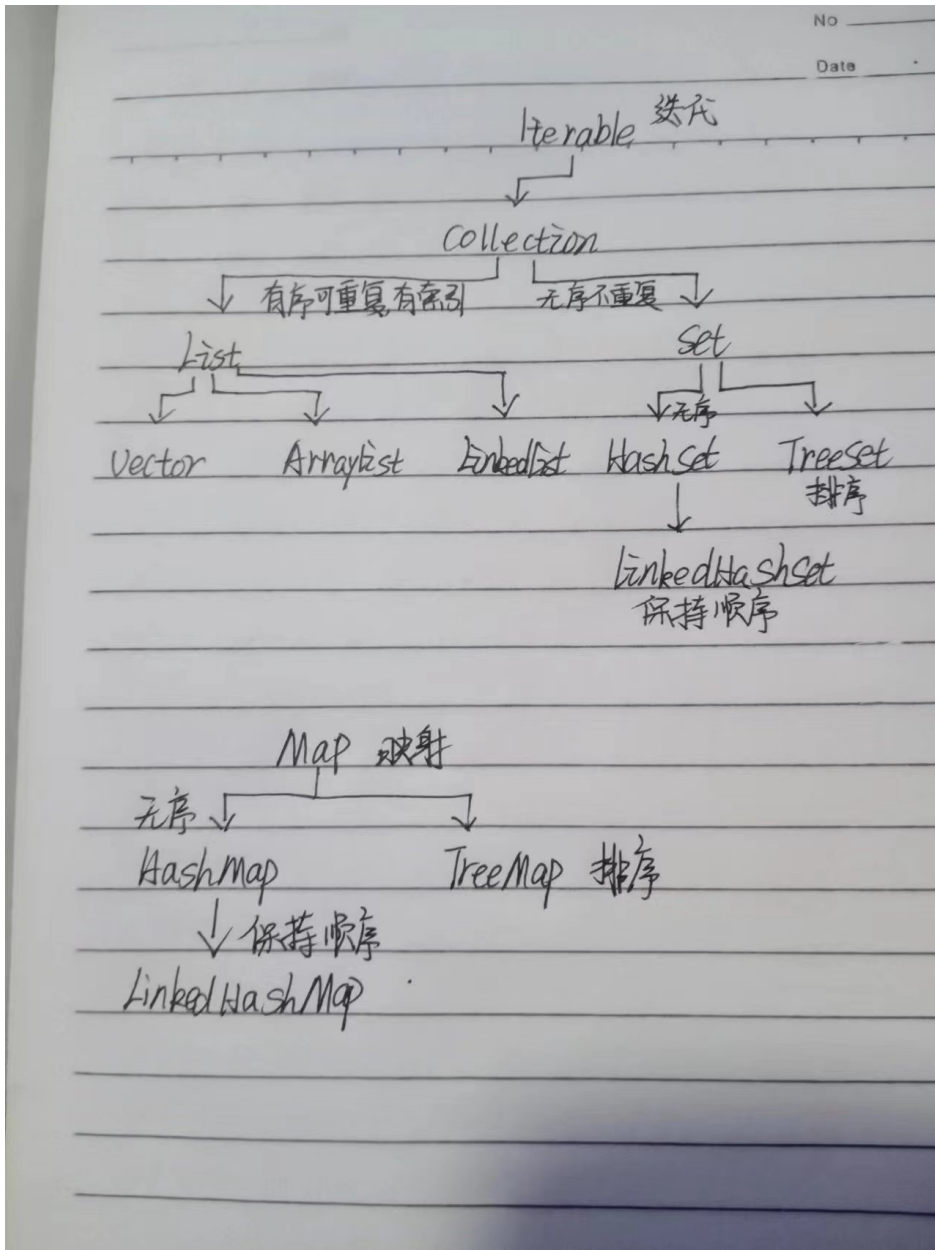 No
Date
Iterable 迭代
Collection
有序可重复,有索引 无序不重复
List Set
无序
Vector ArrayList LinkedList HashSet TreeSet
排序
LinkedHashSet
保持顺序
Map 映射
无序
HashMap TreeMap 排序
保持顺序
LinkedHashMap